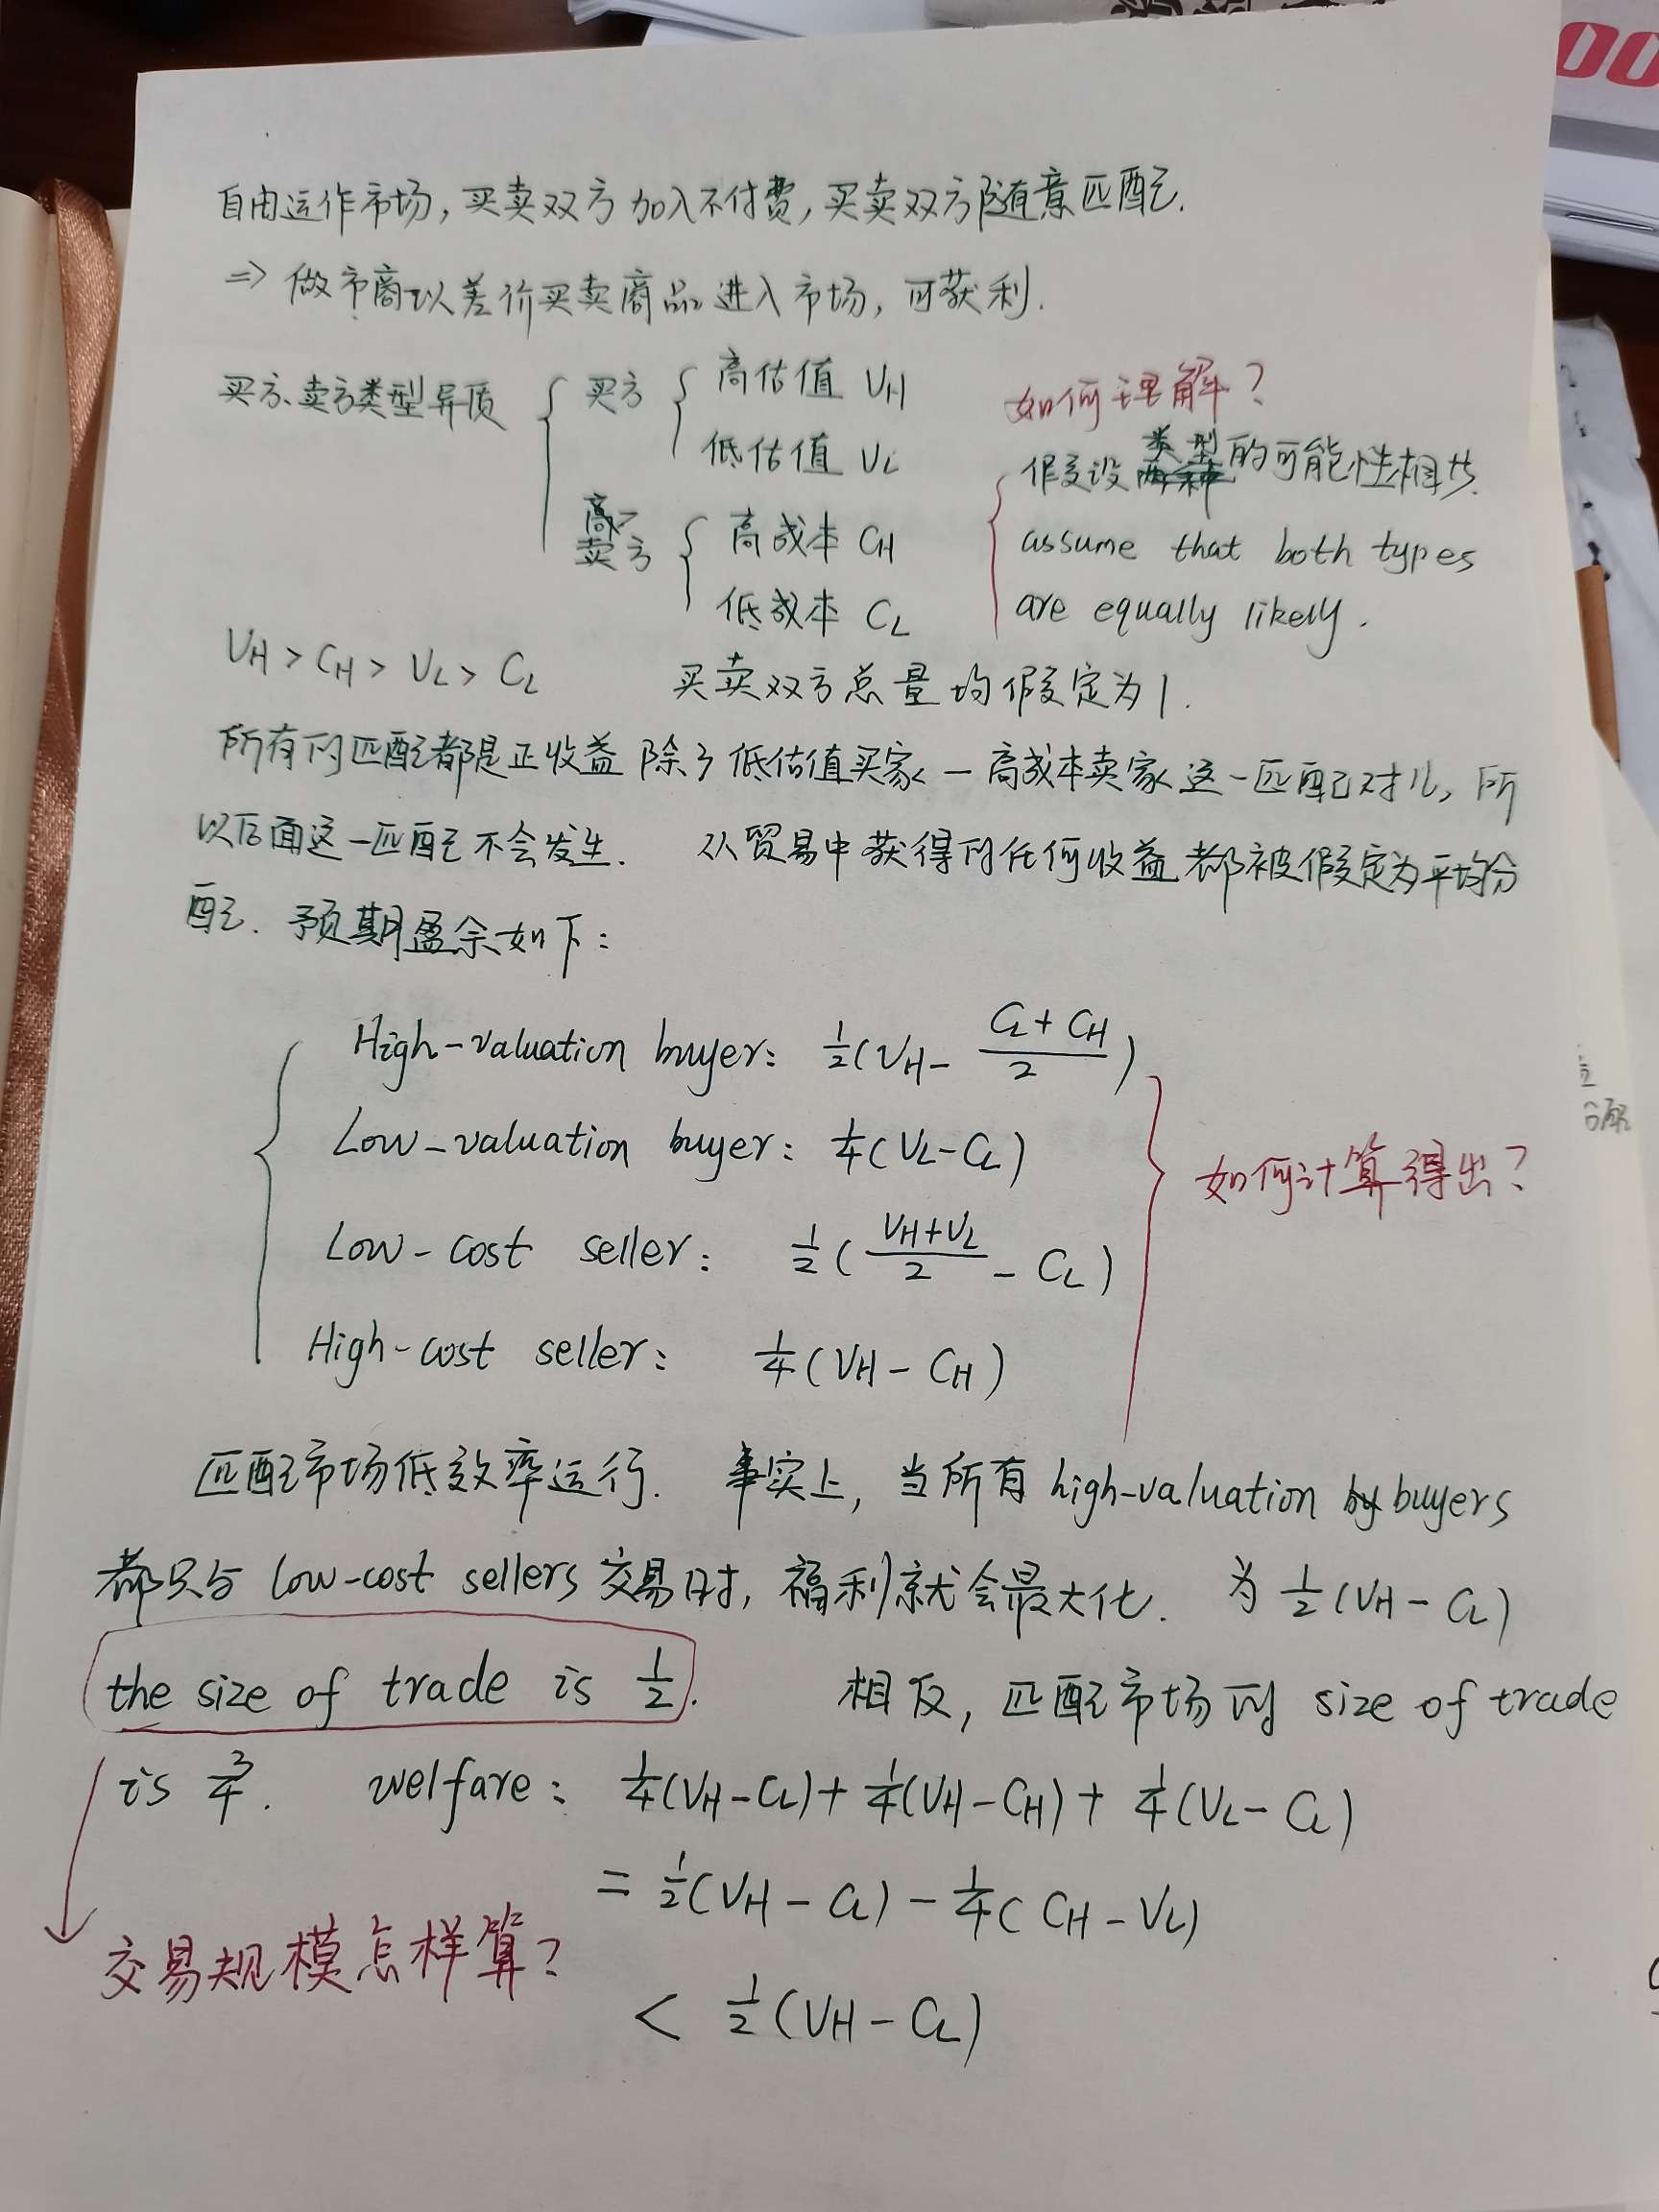 自由运作市场，买卖双方加入不付费，买卖双方随意匹配．
⇒ 做市商以差价买卖商品进入市场，可获利．
买方、卖方类型异质 { 买方 { 高估值 VH
低估值 VL
卖方 { 高成本 CH
低成本 CL
如何理解？
假设类型的可能性相当．
assume that both types
are equally likely .
VH > CH > VL > CL 买卖双方总量均假定为1．
所有的匹配都是正收益 除了低估值买家－高成本卖家这一匹配对儿，所
以后面这一匹配不会发生． 从贸易中获得的任何收益都被假定为平均分
配．预期盈余如下：
High-valuation buyer: 1/2(VH - (CL + CH)/2)
Low-valuation buyer: 1/4(VL-CL)
Low-cost seller: 1/2((VH+VL)/2 - CL)
High-cost seller: 1/4(VH-CH)
如何计算得出？
匹配市场低效率运行． 事实上，当所有 high-valuation buyers
都只与 Low-cost sellers 交易时，福利就会最大化． 为 1/2(VH-CL)
the size of trade is 1/2. 相反，匹配市场的 size of trade
is 3/4. welfare: 1/4(VH-CL)+ 1/4(VH-CH)+ 1/4(VL-CL)
= 1/2(VH-CL) - 1/4(CH-VL)
交易规模怎样算？
< 1/2(VH-CL)
00